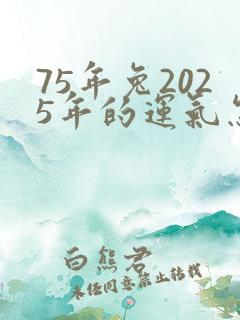 75年兔202
5年的運氣怎
白熊君
未任同意禁止转载